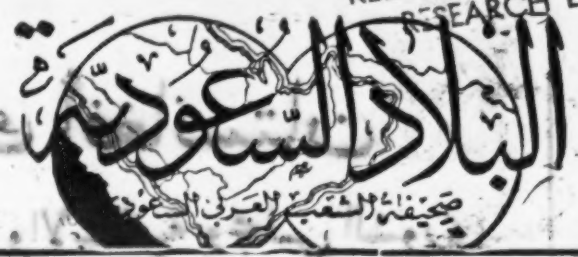 RESEARCH
البلاد السعودية
صحيفة الشعب العربي السعودي